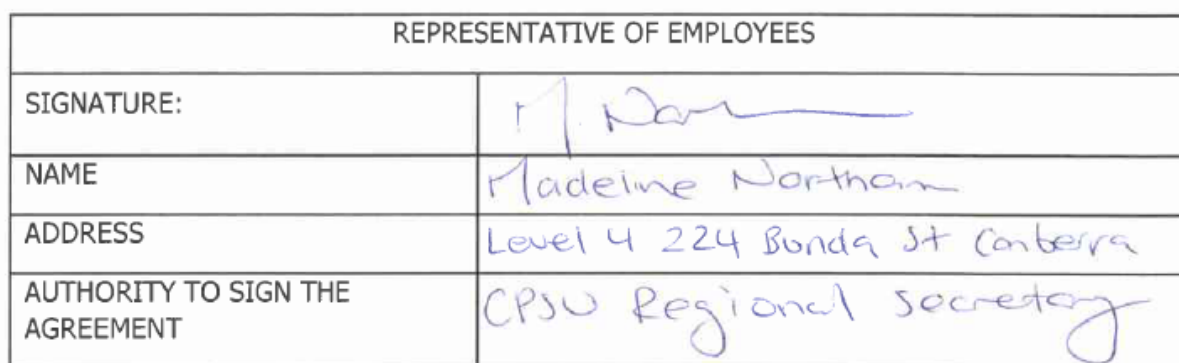 REPRESENTATIVE OF EMPLOYEES
SIGNATURE: M
NAME Madeline Northam
ADDRESS Level 4 224 Bunda St Canberra
AUTHORITY TO SIGN THE
AGREEMENT CPSU Regional Secretary